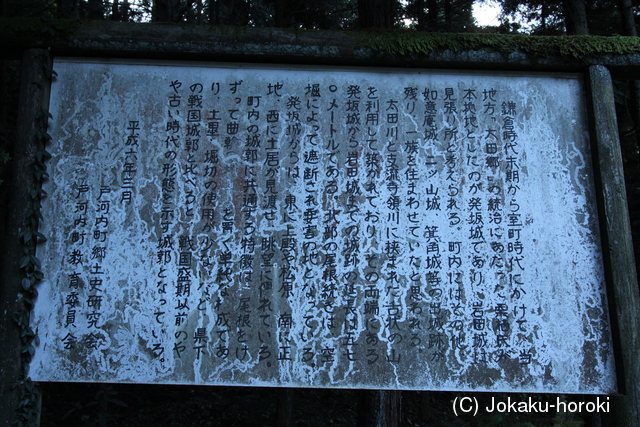 鎌倉時代末期から室町時代にかけて、当
地方、太田郷の統治にあたった栗栖氏が
本拠地としたのが発坂城であり、岩田城は
見張り所と考えられる。町内にはその他
如意庵城、二ツ山城、箕角城等の出城跡が
残り、一族を住まわせていたと思われる。
太田川と支流寺領川に挟まれた舌状の山
を利用して築かれており、その両端にある
発坂城から岩田城までの城跡の延長は五七
〇メートルである。北部の尾根続きは、空
堀によって遮断され要害の地となっている。
発坂城からは、東に上殿や松原、南に正
地、西に土居が見渡せ、眺望に優れている。
町内の城郭に共通する特徴は、尾根をけ
ずって曲輪 を置く単純な構成であ
り、土塁、堀切の使用が少ないなど、県下
の戦国城郭と比べると、戦国盛期以前のや
や古い時代の形態を示す城郭となっている。
平成六年三月
戸河内町郷土史研究会
戸河内町教育委員会
(C) Jokaku-horoki